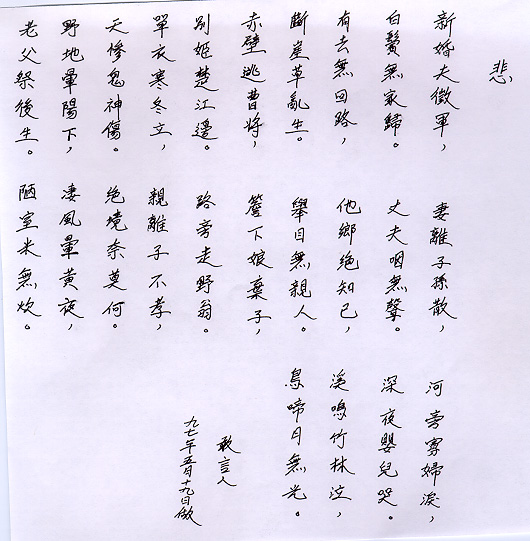 悲
新婚夫徵軍，
白鬢無家歸。
有去無回路，
斷崖草亂生。
赤壁逃曹將，
別姬楚江邊。
單衣寒冬立，
天慘鬼神傷。
野地暈陽下，
老父祭後生。
妻離子孫散，
丈夫咽無聲。
他鄉絕知己，
舉目無親人。
簷下娘棄子，
路旁走野翁。
親離子不孝，
絕境奈莫何。
淒風暈黃夜，
陋室米無炊。
河旁寡婦淚，
深夜嬰兒哭。
溪鳴竹林泣，
鳥啼月無光。
敢言人
九七年五月十九日做